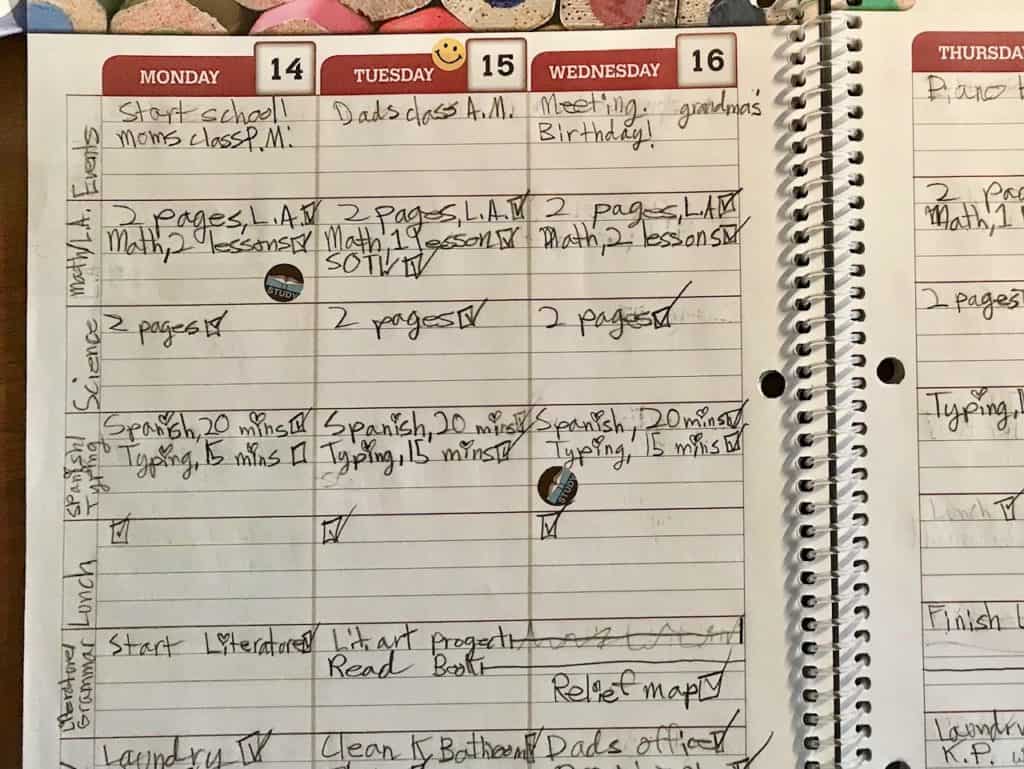 MONDAY 14
TUESDAY 15
WEDNESDAY 16
THURSDA
Events
Start school!
moms class P.M.
Dads class A.M.
Meeting. grandma's
Birthday!
Piano
Math/L.A.
2 pages, L.A.
Math, 2 lessons
STUDY
2 pages, L.A.
Math, 1 lesson
SOTW
2 pages, L.A.
Math, 2 lessons
2 pag
Math, 1
Science
2 pages
2 pages
2 pages
2 pages
Spanish/
Typing
Spanish, 20 mins
Typing, 15 mins
Spanish, 20 mins
Typing, 15 mins
Spanish, 20 mins
Typing, 15 mins
STUDY
Typing, 1
Lunch
Lunch
Literature/
Grammar
Start Literature
Lit. art progect
Read Book
Relief map
Finish L
Laundry
Clean K. Bathroom
Dads office
Laundry
K.P. w